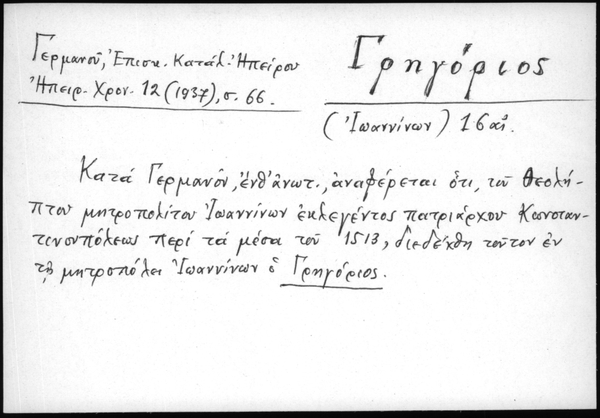 Γερμανοῦ, Ἐπισκ. Κατάλ. Ἠπείρου
Ἠπειρ. Χρον. 12 (1937), σ. 66.
Γρηγόριος
(Ἰωαννίνων) 16 αἰ.
Κατά Γερμανόν, ἔνθ' ἀνωτ., ἀναφέρεται ὅτι, τοῦ Θεολή-
πτου μητροπολίτου Ἰωαννίνων ἐκλεγέντος πατριάρχου Κωνσταν-
τινουπόλεως περί τά μέσα τοῦ 1513, διεδέχθη τοῦτον ἐν
τῇ μητροπόλει Ἰωαννίνων ὁ Γρηγόριος.